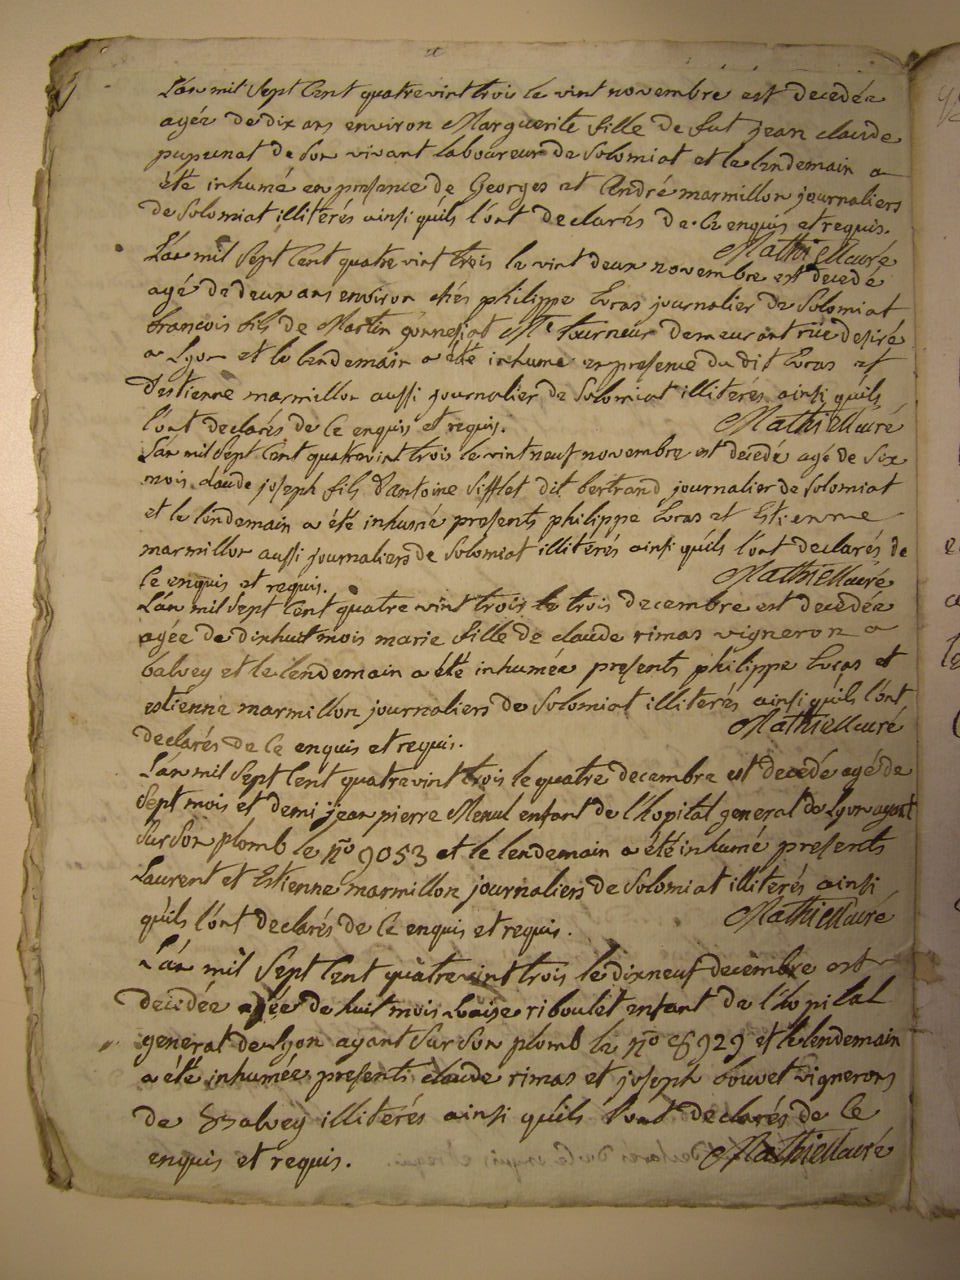 L'an mil sept cent quatre vint trois le vint novembre est decedée
agée de dix ans environ Marguerite fille de fut jean claude
pupunat de son vivant laboureur de Solomiat et le lendemain a
été inhumé en presence de Georges et André marmillon journaliers
de Solomiat illiterés ainsi qu'ils l'ont declarés de ce enquis et requis.
Mathieu curé
L'an mil sept cent quatre vint trois le vint deux novembre est decedé
agé de deux ans environ chés philippe Evras journalier de Solomiat
francois fils de Martin Me tourneur demeurant rüe desiré
a Lyon et le lendemain a été inhumé en presence du dit Evras et
d'estienne marmillon aussi journalier de Solomiat illiterés ainsi qu'ils
l'ont declarés de ce enquis et requis.
Mathieu curé
L'an mil sept cent quatre vint trois le vint neuf novembre est decedé agé de six
mois claude joseph fils d'antoine Sifflet dit bertrand journalier de Solomiat
et le lendemain a été inhumé presents philippe Evras et Estienne
marmillon aussi journaliers de Solomiat illiterés ainsi qu'ils l'ont declarés de
ce enquis et requis.
Mathieu curé
L'an mil sept cent quatre vint trois le trois decembre est decedée
agée de dixhuit mois marie fille de claude rimas vigneron a
balvey et le lendemain a été inhumée presents philippe Evras et
estienne marmillon journaliers de Solomiat illiterés ainsi qu'ils l'ont
declarés de ce enquis et requis.
Mathieu curé
L'an mil sept cent quatre vint trois le quatre decembre est decedé agé de
sept mois et demi jean pierre enfant de l'hopital general de Lyon ayant
sur son plomb le no 9053 et le lendemain a été inhumé presents
Laurent et Estienne marmillon journaliers de Solomiat illiterés ainsi
qu'ils l'ont declarés de ce enquis et requis.
Mathieu curé
L'an mil sept cent quatre vint trois le dixneuf decembre est
decedée agée de huit mois Louise riboulet enfant de l'hopital
general de Lyon ayant sur son plomb le no et le lendemain
a été inhumée presents claude rimas et joseph bouvet vignerons
de Balvey illiterés ainsi qu'ils l'ont declarés de ce
enquis et requis.
Mathieu curé